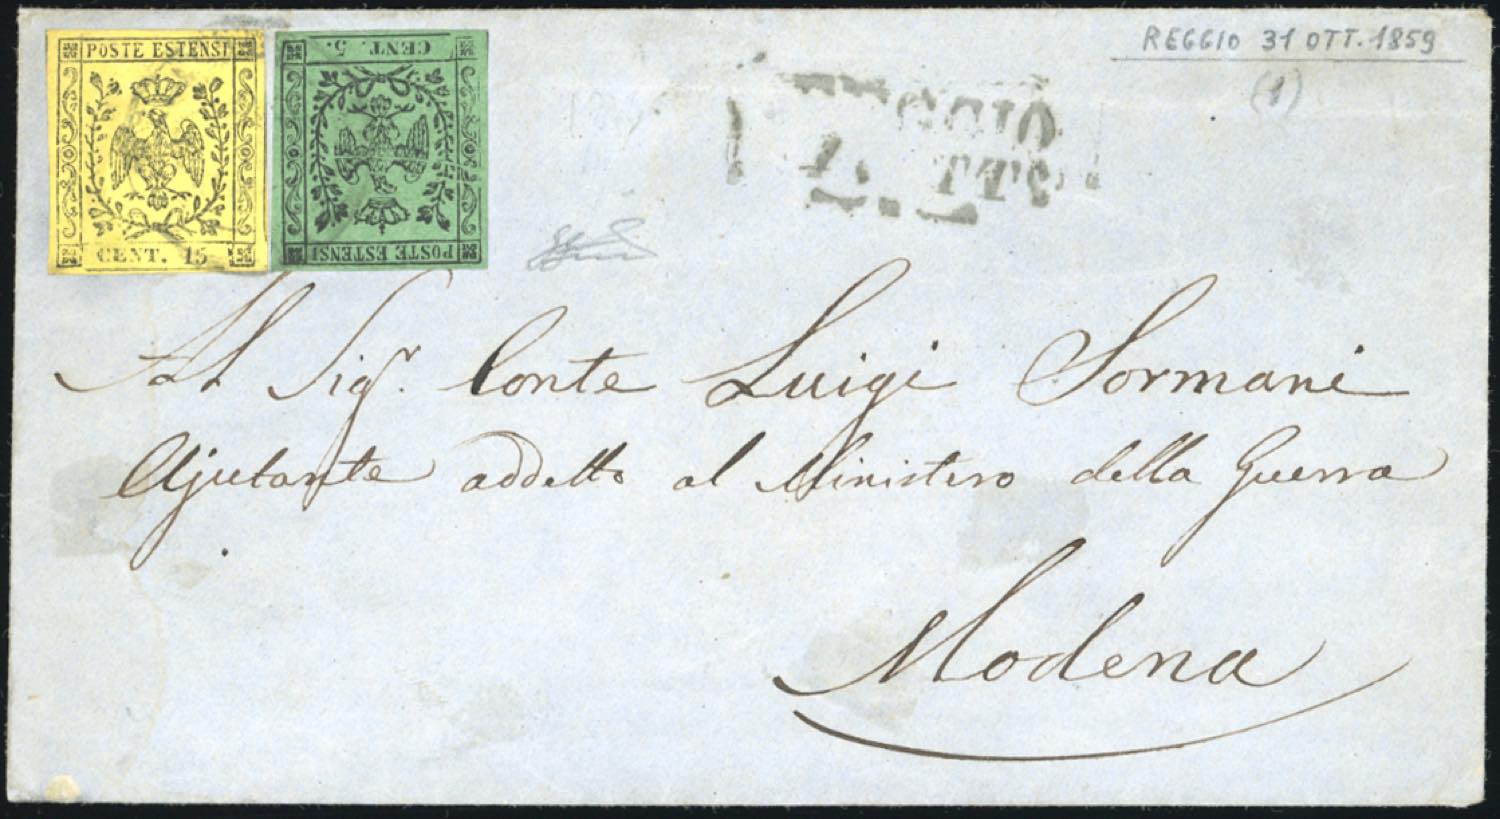 POSTE ESTENSI
CENT. 15
CENT. 5.
POSTE ESTENSI
REGGIO 31 OTT. 1859
(1)
Al Sigr. Conte Luigi Sormani
Ajutante addetto al Ministero della Guerra
Modena